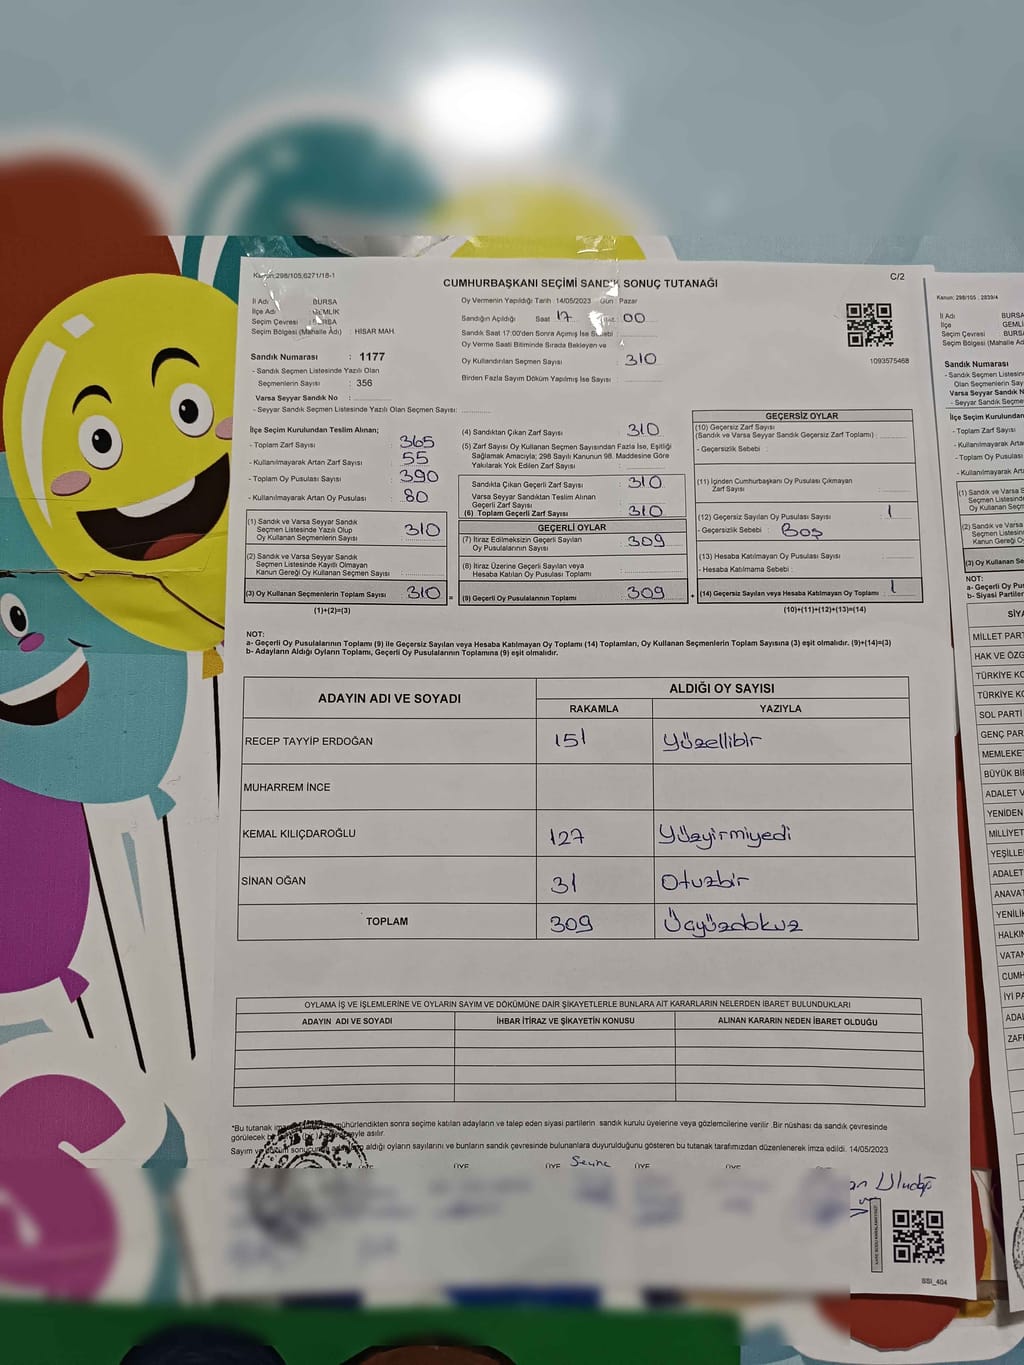 Kanun:298/105,6271/18-1
C/2
CUMHURBAŞKANI SEÇİMİ SANDIK SONUÇ TUTANAĞI
İl Adı : BURSA
İlçe Adı : GEMLİK
Seçim Çevresi : BURSA
Seçim Bölgesi (Mahalle Adı) : HİSAR MAH.
Sandık Numarası : 1177
- Sandık Seçmen Listesinde Yazılı Olan
Seçmenlerin Sayısı : 356
Varsa Seyyar Sandık No :
- Seyyar Sandık Seçmen Listesinde Yazılı Olan Seçmen Sayısı: ............
Oy Vermenin Yapıldığı Tarih : 14/05/2023 Gün : Pazar
Sandığın Açıldığı Saat 17 00
Sandık Saat 17:00'den Sonra Açımış İse Sebebi :
Oy Verme Saati Bitiminde Sırada Bekleyen ve
Oy Kullandırılan Seçmen Sayısı 310
Birden Fazla Sayım Döküm Yapılmış İse Sayısı :
1093575468
İlçe Seçim Kurulundan Teslim Alınan;
- Toplam Zarf Sayısı : 365
- Kullanılmayarak Artan Zarf Sayısı : 55
- Toplam Oy Pusulası Sayısı : 390
- Kullanılmayarak Artan Oy Pusulası : 80
(1) Sandık ve Varsa Seyyar Sandık
Seçmen Listesinde Yazılı Olup
Oy Kullanan Seçmenlerin Sayısı : 310
(2) Sandık ve Varsa Seyyar Sandık
Seçmen Listesinde Kayıtlı Olmayan
Kanun Gereği Oy Kullanan Seçmen Sayısı :
(3) Oy Kullanan Seçmenlerin Toplam Sayısı : 310 =
(1)+(2)=(3)
(4) Sandıktan Çıkan Zarf Sayısı : 310
(5) Zarf Sayısı Oy Kullanan Seçmen Sayısından Fazla İse, Eşitliği
Sağlamak Amacıyla; 298 Sayılı Kanunun 98. Maddesine Göre
Yakılarak Yok Edilen Zarf Sayısı :
Sandıkta Çıkan Geçerli Zarf Sayısı : 310
Varsa Seyyar Sandıktan Teslim Alınan
Geçerli Zarf Sayısı :
(6) Toplam Geçerli Zarf Sayısı : 310
GEÇERLİ OYLAR
(7) İtiraz Edilmeksizin Geçerli Sayılan
Oy Pusulalarının Sayısı : 309
(8) İtiraz Üzerine Geçerli Sayılan veya
Hesaba Katılan Oy Pusulası Toplamı :
(9) Geçerli Oy Pusulalarının Toplamı : 309 +
GEÇERSİZ OYLAR
(10) Geçersiz Zarf Sayısı
(Sandık ve Varsa Seyyar Sandık Geçersiz Zarf Toplamı) :
- Geçersizlik Sebebi :
(11) İçinden Cumhurbaşkanı Oy Pusulası Çıkmayan
Zarf Sayısı :
(12) Geçersiz Sayılan Oy Pusulası Sayısı : 1
- Geçersizlik Sebebi : Boş
(13) Hesaba Katılmayan Oy Pusulası Sayısı :
- Hesaba Katılmama Sebebi :
(14) Geçersiz Sayılan veya Hesaba Katılmayan Oy Toplamı : 1
(10)+(11)+(12)+(13)=(14)
NOT:
a- Geçerli Oy Pusulalarının Toplamı (9) ile Geçersiz Sayılan veya Hesaba Katılmayan Oy Toplamı (14) Toplamları, Oy Kullanan Seçmenlerin Toplam Sayısına (3) eşit olmalıdır. (9)+(14)=(3)
b- Adayların Aldığı Oyların Toplamı, Geçerli Oy Pusulalarının Toplamına (9) eşit olmalıdır.
ADAYIN ADI VE SOYADI
ALDIĞI OY SAYISI
RAKAMLA YAZIYLA
RECEP TAYYİP ERDOĞAN 151 Yüzellibir
MUHARREM İNCE
KEMAL KILIÇDAROĞLU 127 Yüzyirmiyedi
SİNAN OĞAN 31 Otuzbir
TOPLAM 309 Üçyüzdokuz
OYLAMA İŞ VE İŞLEMLERİNE VE OYLARIN SAYIM VE DÖKÜMÜNE DAİR ŞİKAYETLERLE BUNLARA AİT KARARLARIN NELERDEN İBARET BULUNDUKLARI
ADAYIN ADI VE SOYADI İHBAR İTİRAZ VE ŞİKAYETİN KONUSU ALINAN KARARIN NEDEN İBARET OLDUĞU
*Bu tutanak mühürlendikten sonra seçime katılan adayların ve talep eden siyasi partilerin sandık kurulu üyelerine veya gözlemcilerine verilir .Bir nüshası da sandık çevresinde
görülecek asılır.
Sayım ve aldığı oyların sayılarını ve bunların sandık çevresinde bulunanlara duyurulduğunu gösteren bu tutanak tarafımızdan düzenlenerek imza edildi. 14/05/2023
ÜYE ÜYE ÜYE ÜYE
SSI_404
Kanun: 298/105 , 2839/4
İl Adı : BURSA
İlçe : GEMLİK
Seçim Çevresi : BURSA
Seçim Bölgesi (Mahalle
Sandık Numarası
- Sandık Seçmen
Olan Seçmenlerin Sayısı
Varsa Seyyar Sandık
- Seyyar Sandık Seçme
İlçe Seçim Kurulundan
- Toplam Zarf Sayısı
- Kullanılmayarak Artan
- Toplam Oy Pusulası
- Kullanılmayarak Artan
NOT:
MİLLET PART
HAK VE ÖZG
TÜRKİYE KO
TÜRKİYE KO
SOL PARTİ
GENÇ PAR
MEMLEKET
BÜYÜK Bİ
ADALET V
YENİDEN
MİLLİYET
YEŞİLLE
ADALET
ANAVAT
YENİLİK
HALKIN
VATAN
CUMH
İYİ PA
ADAL
ZAFE